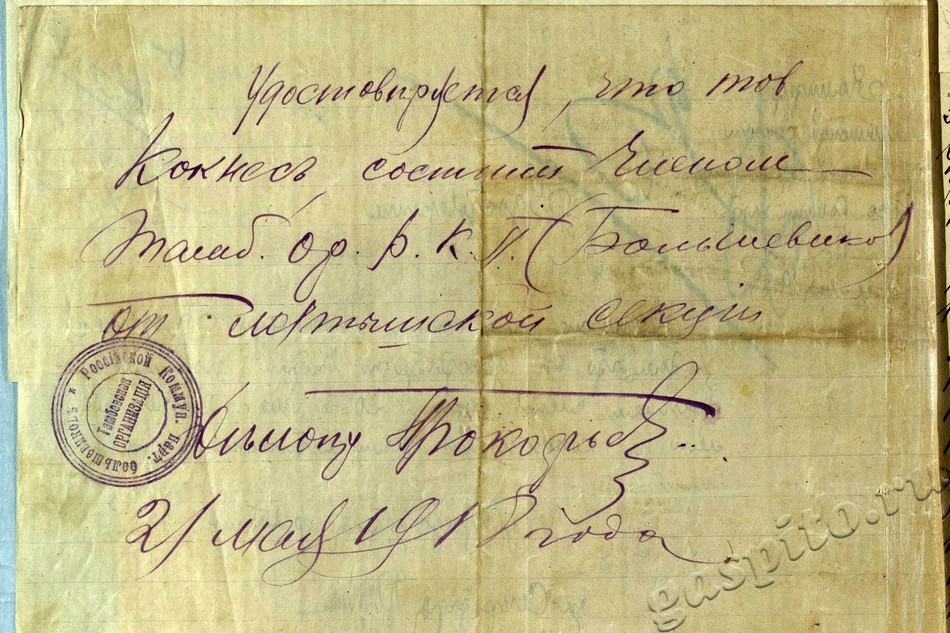 Удостовиряется, что тов
Кокнесъ, состоит Членом
Тамб. ор. Р. К. П. (Большевиков)
от Латышской секции
Прокофьев
21 мая 1918 года
Россійской Коммун. парт. большевиковъ
Тамбовская
ОРГАНИЗАЦІЯ
gaspito.ru